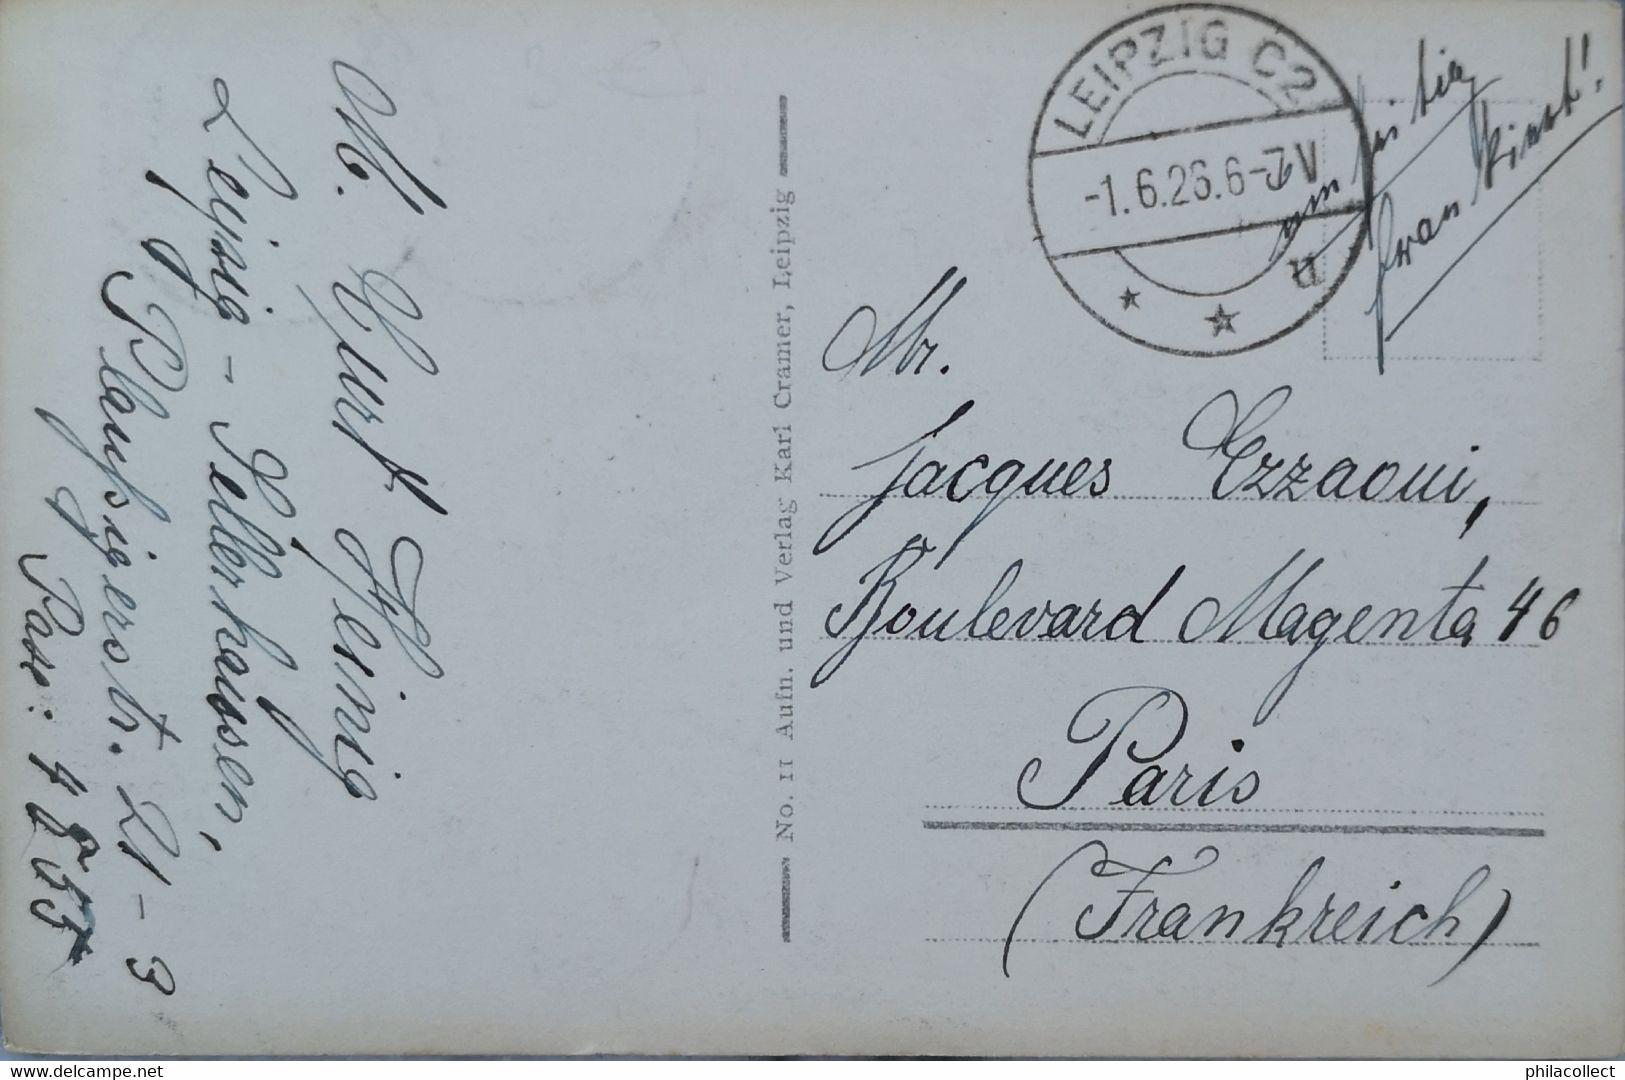 M. Kurt Heinig
Leipzig - Sellerhausen,
Plaußigerstr. 21 - 3
No. 11 Aufn. und Verlag Karl Cramer, Leipzig
LEIPZIG C2
-1.6.26.6-7V
u
Mr.
Jacques Ezzaoui,
Boulevard Magenta 46
Paris
(Frankreich)
delcampe.net
philacollect